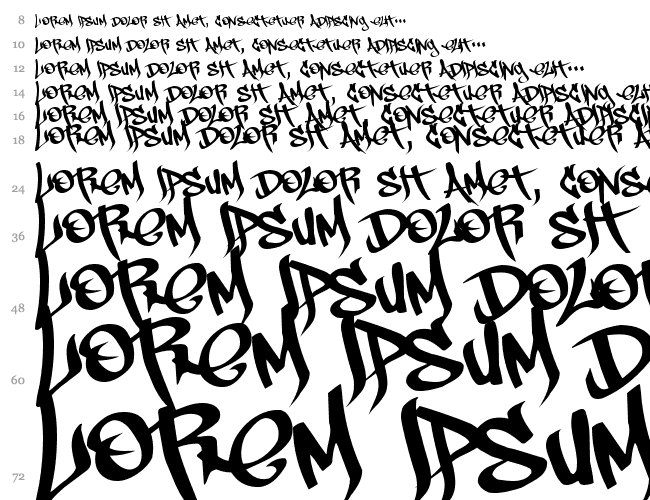 8 Lorem ipsum dolor sit amet, consectetuer adipiscing elit...
10 Lorem ipsum dolor sit amet, consectetuer adipiscing elit...
12 Lorem ipsum dolor sit amet, consectetuer adipiscing elit...
14 Lorem ipsum dolor sit amet, consectetuer adipiscing el
16 Lorem ipsum dolor sit amet, consectetuer adipiscin
18 Lorem ipsum dolor sit amet, consectetuer a
24 Lorem ipsum dolor sit amet, conse
36 Lorem ipsum dolor sit
48 Lorem ipsum dolo
60 Lorem ipsum d
72 Lorem ipsum